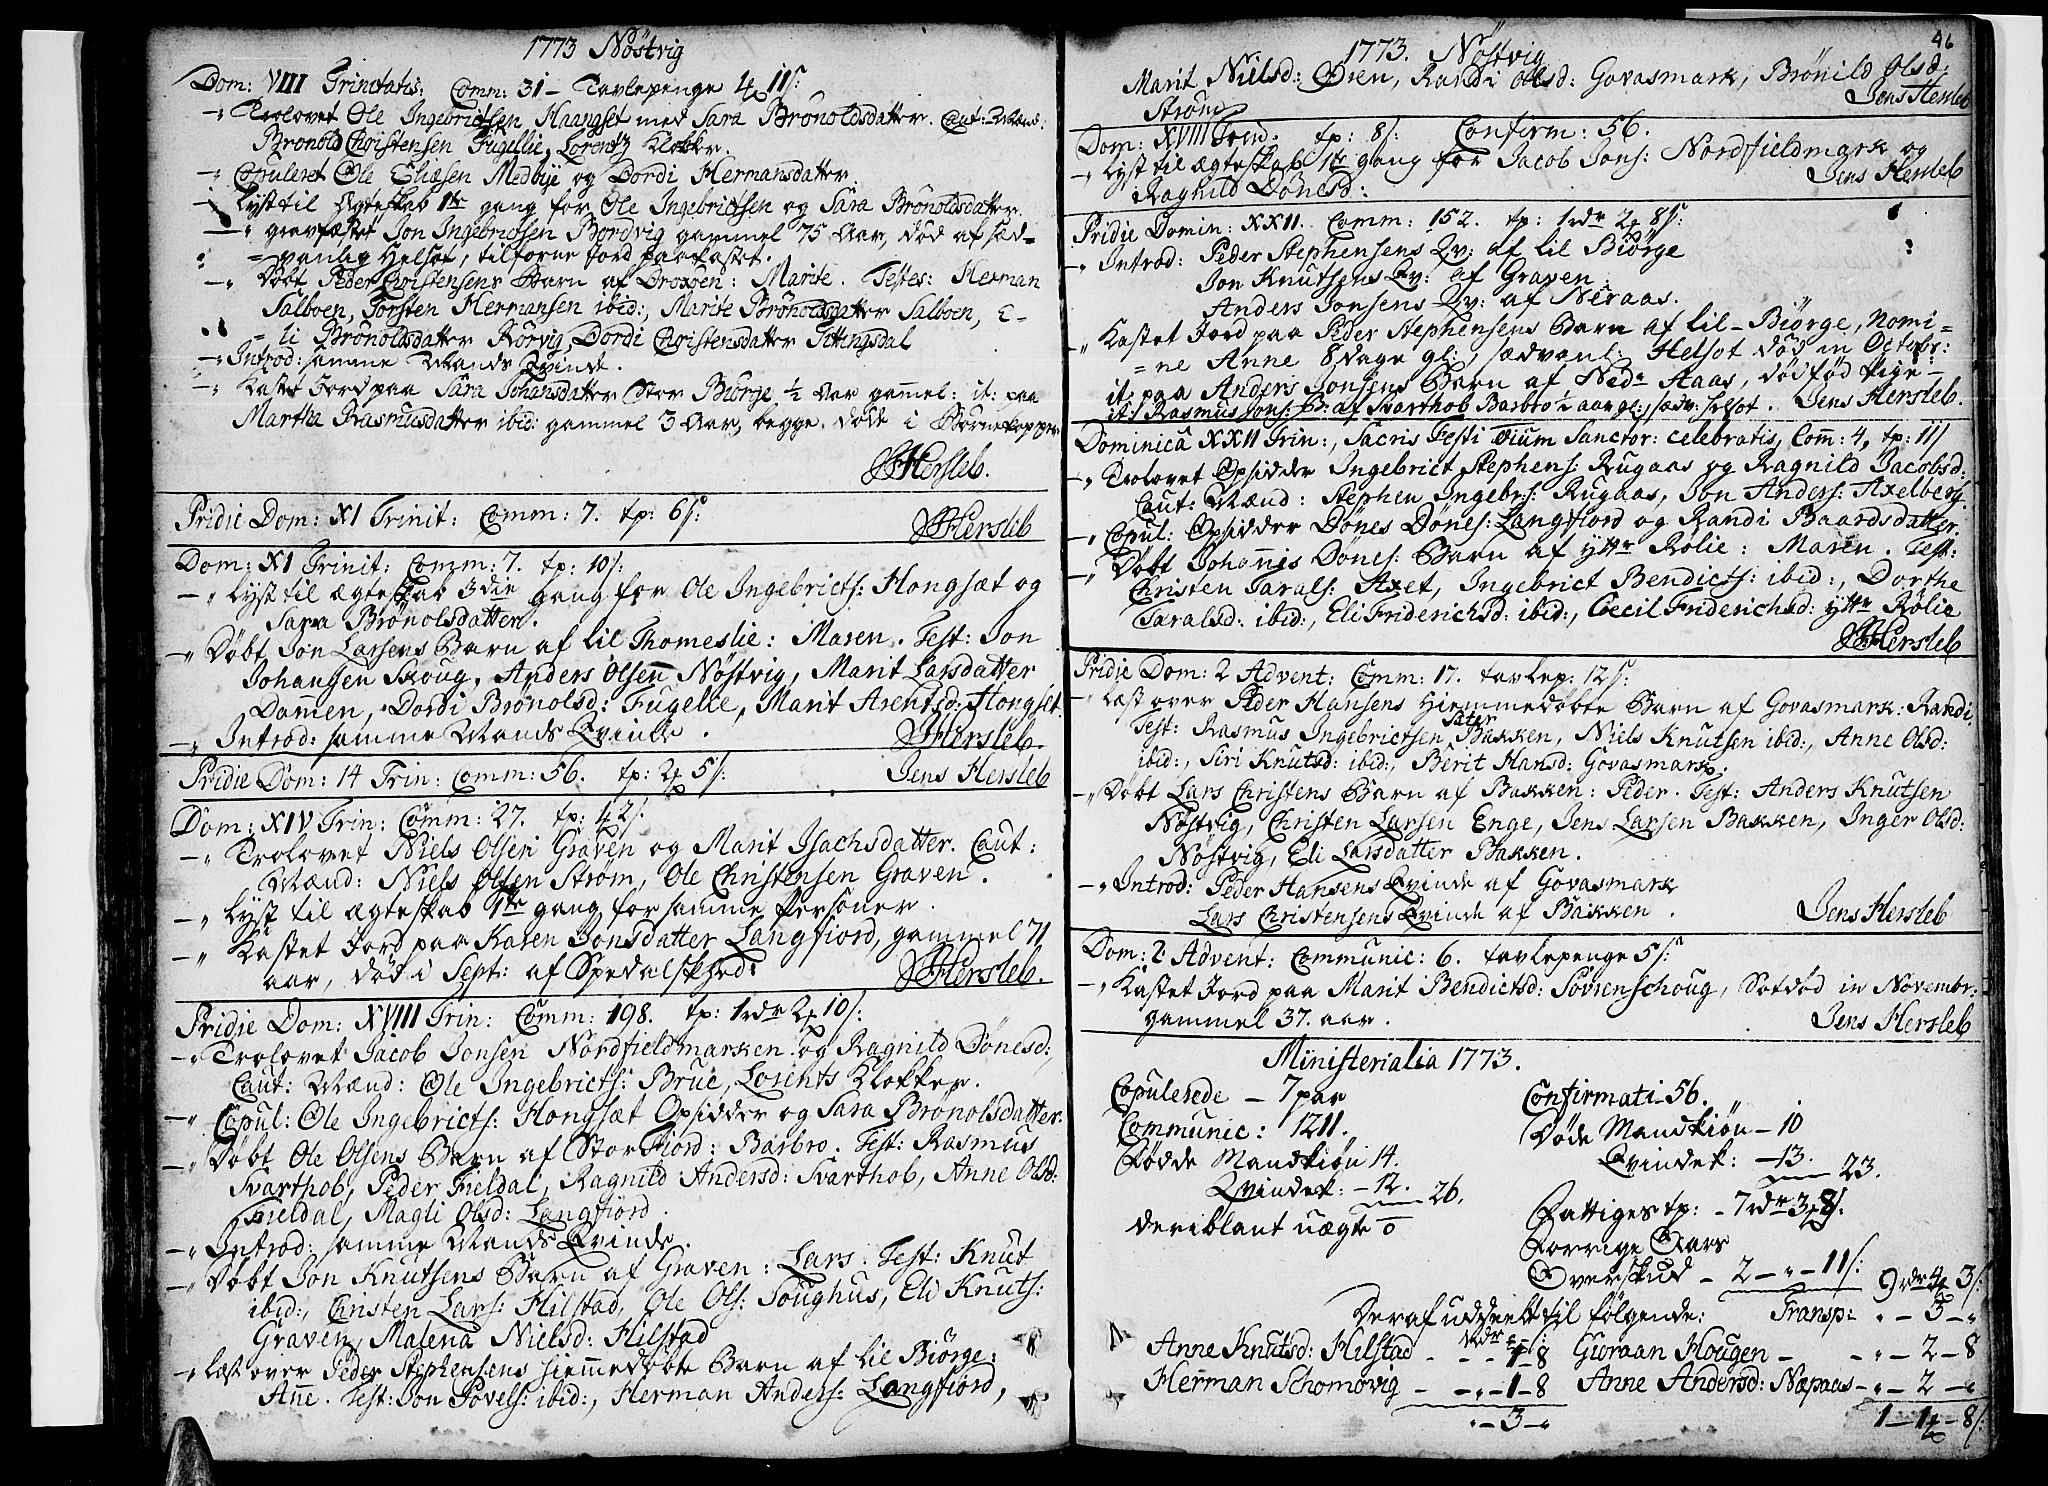 1773 Nöstvig
Dom: VIII Trinitatis: Comm: 31 – Tavlepenge 4 11 s:
–„ Trolovet Ole Ingebrictsen Haangset med Sara Brönoldsdatter. Caut: Mænd.
Bronold Christensen Fugellie, Lorentz Klokker.
–„ Copuleret Ole Eliæsen Medbye og Dordi Hermansdatter.
–„ Lyst til Ægteskab 1te gang for Ole Ingebrictsen og Sara Brönoldsdatter
–„ gravfæstet Jon Ingebrictsen Bordvig gammel 75 Aar, död af sæd=
=vanlig Helsot, tilforne Jord paakastet.
–„ Döbt Peder Christensens Barn af Droxen: Marite. Testes: Herman
Salboen, Torsten Hermansen ibid:, Marite Brönoldsdatter Salboen, E=
=li Brönoldsdatter Körvig, Dordi Christensdatter Tittingsdal
–„ Introd: samme Mands Qvinde.
–„ Kastet Jord paa Sara Johansdatter Stor Biörge ½ Aar gam̅el: it: paa
Martha Rasmusdatter ibid: gammel 3 Aar, begge döde i Börnekopper
JHersleb.
Pridie Dom: XI Trinit: Comm: 7. tp: 6 s:
JHersleb
Dom: XI Trinit: Comm: 7. tp: 10 s:
–„ Lyst til ægteskab 3die gang for Ole Ingebricts: Hongsæt og
Sara Brönolsdatter.
–„ Döbt Jon Larsens Barn af lil Thomeslie: Maren. Test: Jon
Johansen Skoug, Anders Olsen Nöstvig, Marit Larsdatter
Domen, Dordi Brönolsd: Fugelie, Marit Arentsd: Hongset.
–„ Introd: samme Mands Qvinde.
JHersleb.
Pridie Dom: 14 Trin: Comm: 56. tp: 2 5 s:
Jens Hersleb
Dom: XIV Trin: Comm: 27. tp: 42 s:
–„ Trolovet Niels Olsen Graven og Marit Isachsdatter. Caut:
Mænd: Niels Olsen Ström, Ole Christensen Graven.
–„ Lyst til ægteskab 1te gang for samme Personer.
–„ Kastet Jord paa Karen Jonsdatter Langfiord, gammel 71
aar, död i Sept: af Spedalskhed:
JHersleb.
Pridie Dom: XVIII Trin: Comm: 198. tp: 1 rdr 2 10 s:
–„ Trolovet Jacob Jonsen Nordfieldmarken og Ragnild Dönesd:,
Caut: Mænd: Ole Ingebricts: Brue, Lorents Klokker.
–„ Copul: Ole Ingebricts: Hongsæt Opsidder og Sara Brönolsdatter.
–„ Döbt Ole Olsens Barn af Stor Fiord: Barbro. Test: Rasmus
Svarthob, Peder Fieldal, Ragnild Andersd: Svarthob, Anne Olsd:
Fieldal, Magli Olsd: Langfiord.
–„ Introd: samme Mands Qvinde.
–„ Döbt Jon Knutsens Barn af Graven: Lars. Test: Knut
ibid:, Christen Lars: Hilstad, Ole Ols: Soughus, Eli Knuts:
Graven, Malena Nielsd: Hilstad
–„ Læst over Peder Stephensens hiem̅edöbte Barn af lil Biörge:
An̅e. Test: Jon Povels: ibid:, Herman Anders: Langfiord,
46
1773. Nöstvig
Marit Nielsd: Oren, Randi Olsd: Govasmark, Brönild Olsd:
Ström
Jens Hersleb
Dom: XVIII Trin. tp: 8 s: Confirm: 56.
–„ Lyst til ægteskab 1te gang for Jacob Jons: Nordfieldmark og
Raghild Dönesd:
Jens Hersleb
Pridie Domin: XXII. Comm: 152. tp: 1 rdr 2 8 s:
–„ Introd: Peder Stephensens Qv: af lil Biörge
Jon Knutsens Qv: af Graven
Anders Jonsens Qv: af Neraas.
„ Kastet Jord paa Peder Stephensens Barn af lil – Biörge, Nomi=
=ne Anne 8 dage gl:, sædvanl: Helsot död in Octobr:
it: paa Anders Jonsens Barn af Nedr Aaas, dödföd Pige –
it: Rasmus Jons: B: af Svarthob Barbro ½ aar gl:, sædv: helsot. Jens Hersleb.
Dominica XXII Trin:, Sacris Festi Oium Sanctor: celebratis, Com̅: 4, tp: 11 s
–„ Trolovet Opsidder Ingebrict Stephens: Rugaas og Ragnild Jacobsd:
Caut: Mænd: Stephen Ingebr:s: Rugaas, Jon Anders: Axelberg
–„ Copul: Opsidder Dönes Dönes: Langfiord og Randi Baardsdatter.
–„ Döbt Johan̅is Dönes: Barn af ytter Rölie: Maren. Test:
Christen Tarals: Axet, Ingebrict Bendicts: ibid:, Dorthe
Taralsd: ibid:, Eli Friderichsd: ibid:, Cecil Friderichsd: ytter Rölie
JHersleb
Pridie Dom: 2 Advent: Comm: 17. tavlep: 12 s:
–„ Læst over Peder Hansens hiemmedöbte Barn af Govasmark: Randi.
Test: Rasmus Ingebrictsen Sæter Bakken, Niels Knutsen ibid:, Anne Olsd:
ibid:, Siri Knutsd: ibid:, Berit Hansd: Govasmark.
–„ Döbt Lars Christens Barn af Bakken: Peder. Test: Anders Knutsen
Nöstvig, Christen Larsen Enge, Jens Larsen Bakken, Inger Olsd:
Nöstvig, Eli Larsdatter Bakken.
–„ Introd: Peder Hansens Qvinde af Govasmark
Lars Christensens Qvinde af Bakken.
Jens Hersleb
Dom: 2 Advent: Communic: 6. tavlepenge 5 s:
–„ Kastet Jord paa Marit Bendictsd: Sövrenschoug, Sotdöd in Novembr:
gammel 37. aar.
Jens Hersleb
Ministerialia 1773.
Copulerede – 7 par
Communic: 1211.
Födde Mandkiön 14.
Qvindek: – 12. 26.
deriblant uægte 0
Confirmati 56.
Döde Mandkiön – 10
Qvindek: – 13. 23.
Fattiges tp: – 7 rdr 3 8 s.
Forrige Aars
Overskud – 2 – „ – 11 s: 9 rdr 4 3 s:
Deraf uddeelt til fölgende: Transp: „ – 3 – „
Anne Knutsd: Hilstad – „ – 1 – 8 Giöraan Hougen – „ – 2 – 8
Herman Schomövig – „ – 1 – 8 Anne Andersd: Næpaas – „ – 2 – „
„ – 3 – „ 1 – 1 – 8 s.